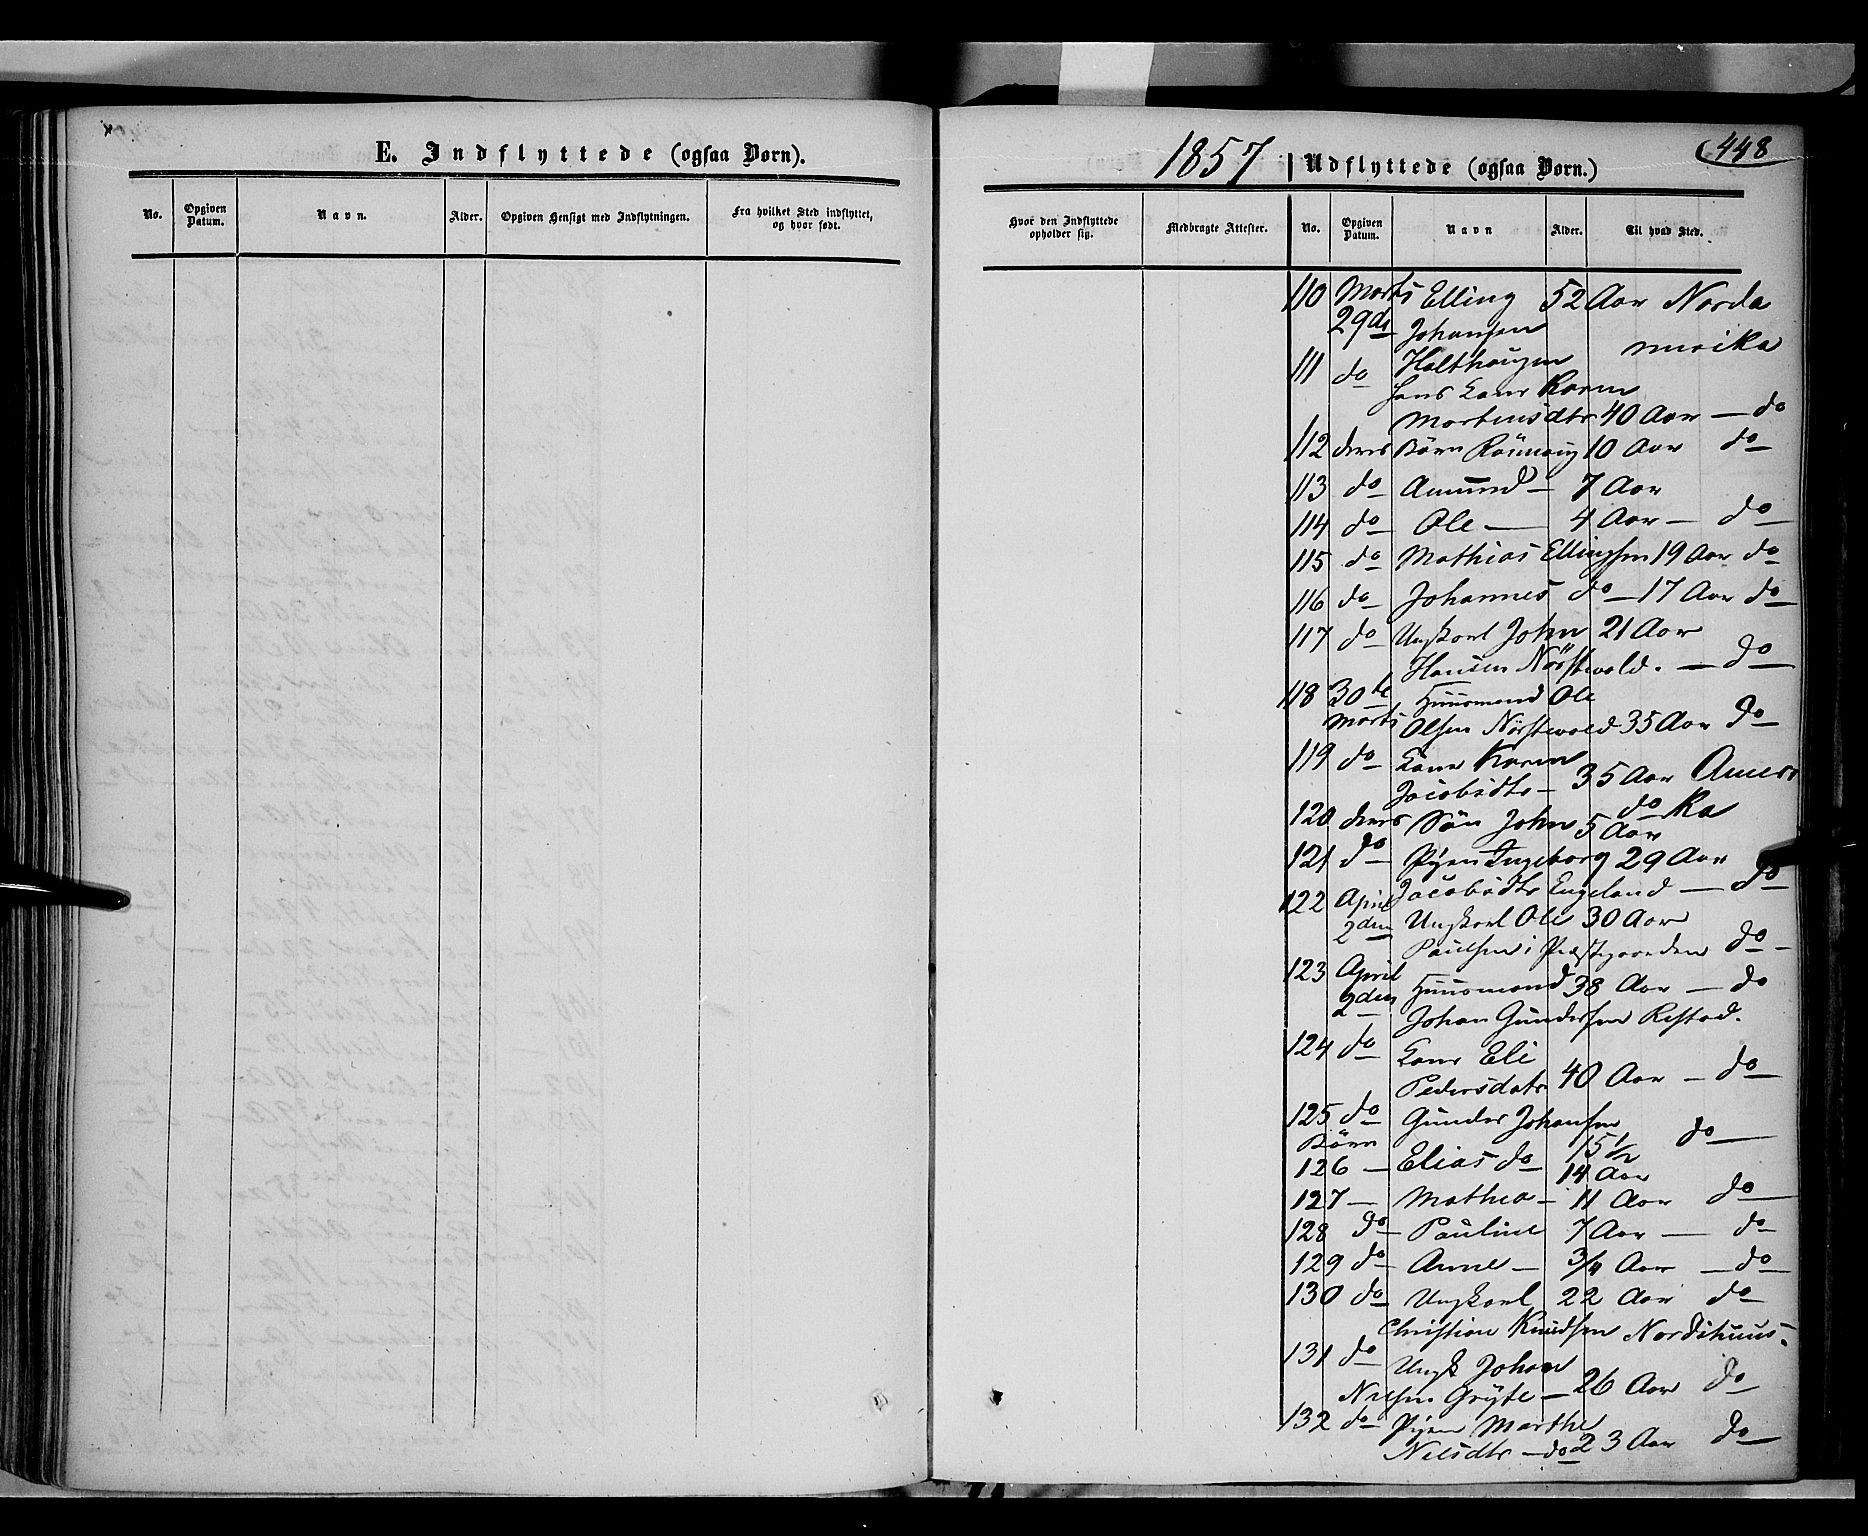 E. Indflyttede (ogsaa Børn).
No.
Opgiven Datum.
Navn.
Alder.
Opgiven Hensigt med Indflytningen.
Fra hvilket Sted indflyttet, og hvor født.
1857
Udflyttede (ogsaa Børn.)
448
Hvor den Indflyttede opholder sig.
Medbragte Attester.
No.
Opgiven Datum.
Navn
Alder.
Til hvad Sted.
110 Marts Elling 52 Aar Norda
29de Johansen merika
111 do Holthaugen
hans Kone Karen
Mortensdtr 40 Aar — do
112 deres Børn Rönnaug 10 Aar do
113 do Amund — 7 Aar
114 do Ole — 4 Aar — do
115 do Mathias Ellingsen 19 Aar do
116 do Johannes do — 17 Aar do
117 do Ungkarl John 21 Aar
Hansen Nörstevold. — do
118 30te Huusmand Ole
Marts Olsen Nörstevold 35 Aar do
119 do Kone Karen
Jacobsdtr — 35 Aar Ameri
120 deres Sön John 5 Aar do ka
121 do Pigen Ingeborg 29 Aar
Jacobsdtr Engeland — do
122 April Ungkarl Ole 30 Aar
2den Paulsen i Præstegaarden do —
123 April Huusmand 38 Aar — do
2den Johan Gundersen Restad.
124 do Kone Eli
Pedersdatr 40 Aar — do
125 do Gunder Johansen
Börn 15 1/2 do
126 — Elias do 14 Aar
127 — Mathea — 11 Aar do
128 do Pauline 7 Aar — do
129 do Anne — 3/4 Aar — do
130 do Ungkarl 22 Aar do
Christian Knudsen Nordihuus.
131 do Ungk Johan
Nielsen Gryte — 26 Aar do
132 do Pigen Marthe
Nilsdtr — do 23 Aar do